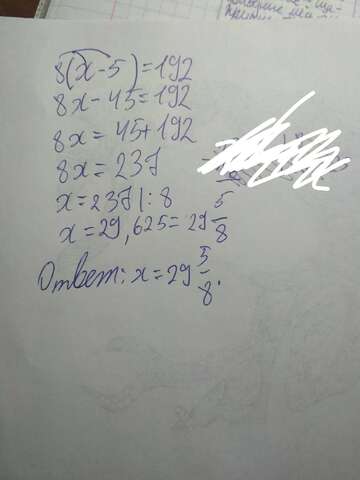 8(x-5)=192
8x-45=192
8x=45+192
8x=237
x=237:8
x=29,625=29 5/8
Ответ: x=29 5/8.